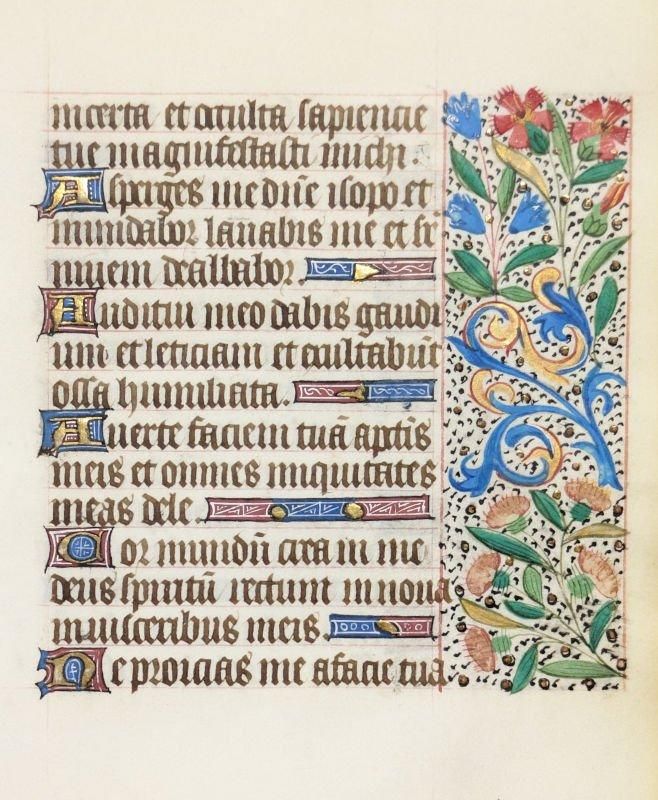 incerta et occulta sapiencie
tue magnifestasti michi.
Asperges me dn̄e isopo et
mundabor lauabis me et su
niuem dealbabor.
Auditui meo dabis gaudi
um et leticiam et exultabūt
ossa humiliata.
Auerte faciem tuā a pctīs
meis et omnes iniquitates
meas dele.
Cor mundū crea in me
deus spiritū rectum innoua
in uisceribus meis.
Ne proicias me a facie tua